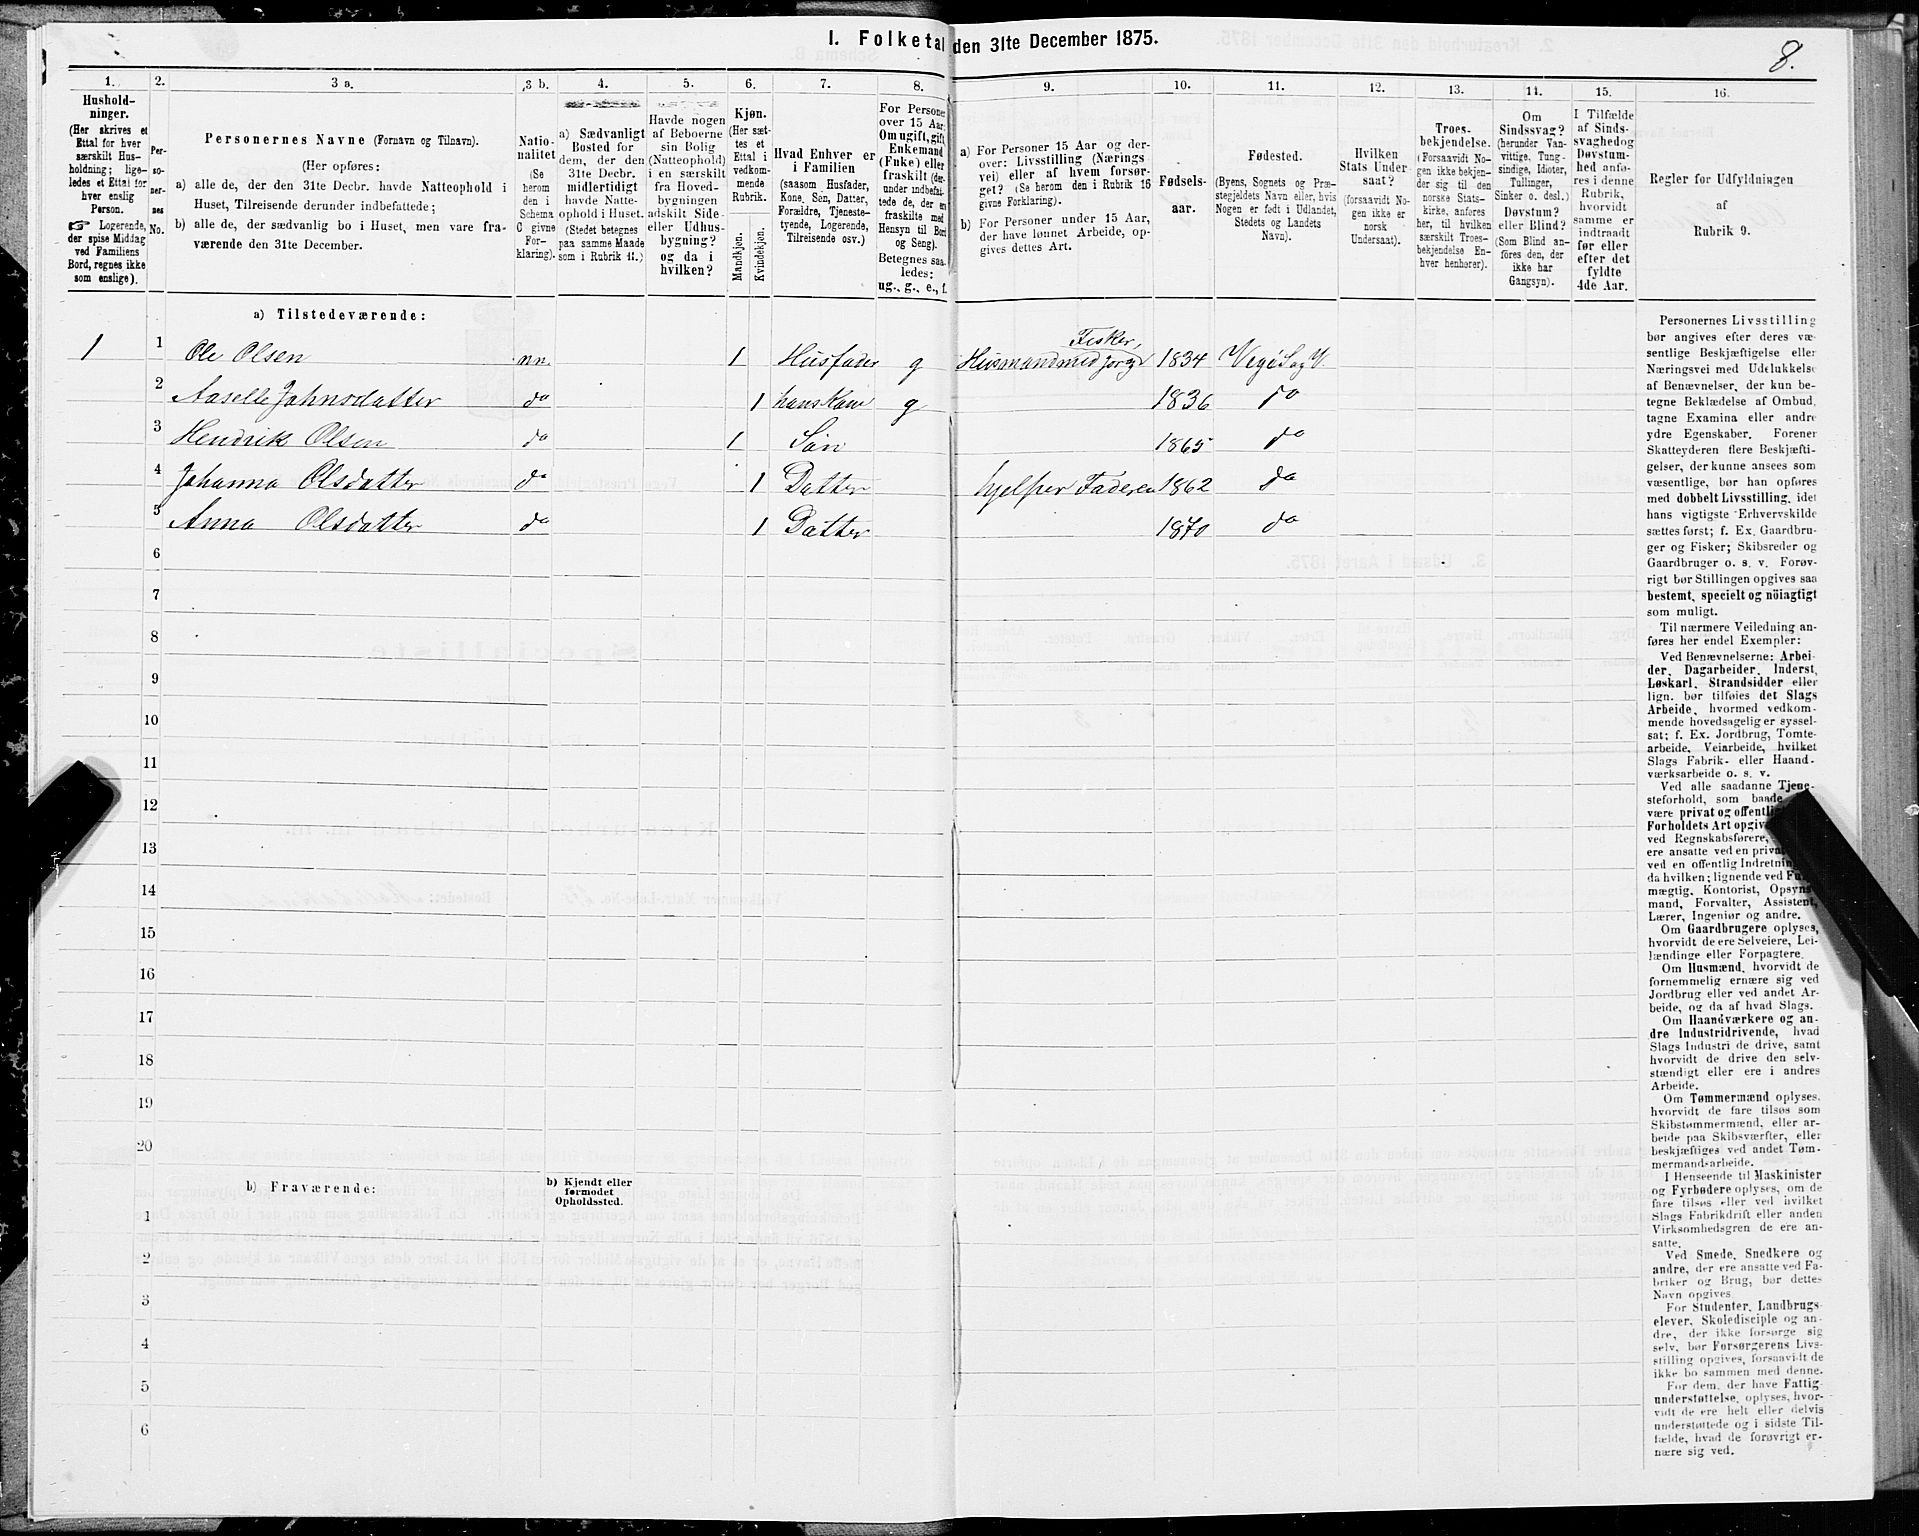 I. Folketal den 31te December 1875.
8.
1. 2. 3 a. 3 b. 4. 5. 6. 7. 8. 9. 10. 11. 12. 13. 14. 15. 16.
Hushold-
ninger.
(Her skrives et
Ettal for hver
særskilt Hus-
holdning; lige-
ledes et Ettal for
hver enslig
Person.
☞ Logerende,
der spise Middag
ved Familiens
Bord, regnes ikke
som enslige).
Per-
so-
ner-
nes
No.
Personernes Navne (Fornavn og Tilnavn).
(Her opføres:
a) alle de, der den 31te Decbr. havde Natteophold i
Huset, Tilreisende derunder indbefattede;
b) alle de, der sædvanlig bo i Huset, men vare fra-
værende den 31te December.
Natio-
nalitet
(Se
herom
den i
Schema
C givne
For-
klaring).
a) Sædvanligt
Bosted for
dem, der den
31te Decbr.
midlertidigt
havde Natte-
ophold i Huset.
(Stedet betegnes
paa samme Maade
som i Rubrik 11.)
Havde nogen
af Beboerne
sin Bolig
(Natteophold)
i en særskilt
fra Hoved-
bygningen
adskilt Side-
eller Udhus-
bygning?
og da i
hvilken?
Kjøn.
(Her sæt-
tes et
Ettal i
vedkom-
mende
Rubrik.
Mandkjøn.
Kvindekjøn.
Hvad Enhver er
i Familien
(saasom Husfader,
Kone, Søn, Datter,
Forældre, Tjeneste-
tyende, Logerende,
Tilreisende osv.)
For Personer
over 15 Aar:
Om ugift, gift,
Enkemand
(Enke) eller
fraskilt (der-
under indbefat-
tede de, der ere
fraskilte med
Hensyn til Bord
og Seng).
Betegnes saa-
ledes:
ug., g., e., f.
a) For Personer 15 Aar og der-
over: Livsstilling (Nærings
vei) eller af hvem forsør-
get? (Se herom den i Rubrik 16
givne Forklaring).
b) For Personer under 15 Aar,
der have lønnet Arbeide, op-
gives dettes Art.
Fødsels-
aar.
Fødested.
(Byens, Sognets og Præ-
stegjeldets Navn eller, hvis
Nogen er født i Udlandet,
Stedets og Landets
Navn).
Hvilken
Stats Under
saat?
(forsaavidt No-
gen ikke er
norsk
Undersaat).
Troes-
bekjendelse.
(Forsaavidt No-
gen ikke bekjen-
der sig til den
norske Stats-
kirke, anføres
her, til hvilken
særskilt Troes-
bekjendelse En-
hver henhører).
Om
Sindssvag?
(herunder Van-
vittige, Tung-
sindige, Idioter,
Tullinger,
Sinker o. desl.)
Døvstum?
eller Blind?
(Som Blind an-
føres den, der
ikke har
Gangsyn).
I Tilfælde
af Sinds-
svaghed og
Døvstum-
hed anfø-
res i denne
Rubrik,
hvorvidt
samme er
indtraadt
før eller
efter det
fyldte
4de Aar.
Regler for Udfyldningen
af
Rubrik 9.
a) Tilstedeværende:
Fisker,
1 1 Ole Olsen nn. 1 Husfader g Husmand med Jord 1834 Vegø Sog V.
2 Aaselle Johnsdatter do 1 hans Kone g 1836 do
3 Hendrik Olsen do 1 Søn 1865 do
4 Johanna Olsdatter do 1 Datter hjelper Faderen 1862 do
5 Anna Olsdatter do 1 Datter 1870 do
6
7
8
9
10
11
12
13
14
15
16
17
18
19
20
b) Fraværende:
b) Kjendt eller
formodet
Opholdssted.
1
2
3
4
5
6
Personernes Livsstilling
bør angives efter deres væ-
sentlige Beskjæftigelse eller
Næringsvei med Udelukkelse
af Benævnelser, der kun be-
tegne Beklædelse af Ombud,
tagne Examina eller andre
ydre Egenskaber. Forener
Skatteyderen flere Beskjæfti-
gelser, der kunne ansees som
væsentlige, bør han opføres
med dobbelt Livsstilling, idet
hans vigtigste Erhvervskilde
sættes først; f. Ex. Gaardbru-
ger og Fisker; Skibsreder og
Gaardbruger o. s. v. Forøv-
rigt bør Stillingen opgives saa
bestemt, specielt og nöiagtigt
som muligt.
Til nærmere Veiledning an-
føres her endel Exempler:
Ved Benævnelserne: Arbei-
der, Dagarbeider, Inderst,
Løskarl, Strandsidder eller
lign. bør tilføies det Slags
Arbeide, hvormed vedkom-
mende hovedsagelig er syssel-
sat; f. Ex. Jordbrug, Tomte-
arbeide, Veiarbeide, hvilket
Slags Fabrik- eller Haand-
værksarbeide o. s. v.
Ved alle saadanne Tjene-
steforhold, som baade
være privat og offentlig
Forholdets Art opgiv
ved Regnskabsførere,
ere ansatte ved en priv
ved en offentlig Indretnin
da hvilken; lignende ved Fuld-
mægtig, Kontorist, Opsyns-
mand, Forvalter, Assistent,
Lærer, Ingeniør og andre.
Om Gaardbrugere oplyses,
hvorvidt de ere Selveiere, Lei-
lændinge eller Forpagtere.
Om Husmænd, hvorvidt de
fornemmelig ernære sig ved
Jordbrug eller ved andet Ar-
beide, og da af hvad Slags.
Om Haandværkere og an-
dre Industridrivende, hvad
Slags Industri de drive, samt
hvorvidt de drive den selv-
stændigt eller ere i andres
Arbeide.
Om Tømmermænd oplyses,
hvorvidt de fare tilsøs som
Skibstømmermænd, eller ar-
beide paa Skibsværfter, eller
beskjæftiges ved andet Tøm-
mermandsarbeide.
I Henseende til Maskinister
og Fyrbødere oplyses, om de
fare tilsøs eller ved hvilket
Slags Fabrikdrift eller anden
Virksomhedsgren de ere an-
satte.
Ved Smede, Snedkere og
andre, der ere ansatte ved Fa-
briker og Brug, bør dettes
Navn opgives.
For Studenter, Landbrugs-
elever, Skoledisciple og an-
dre, der ikke forsørge sig
selv, bør Forsørgerens Livs-
stilling opgives, forsaavidt de
ikke bo sammen med denne.
For dem, der have Fattig-
understøttelse, oplyses, hvor-
vidt de ere helt eller delvis
understøttede og i sidste Til-
fælde, hvad de forøvrigt er-
nære sig ved.